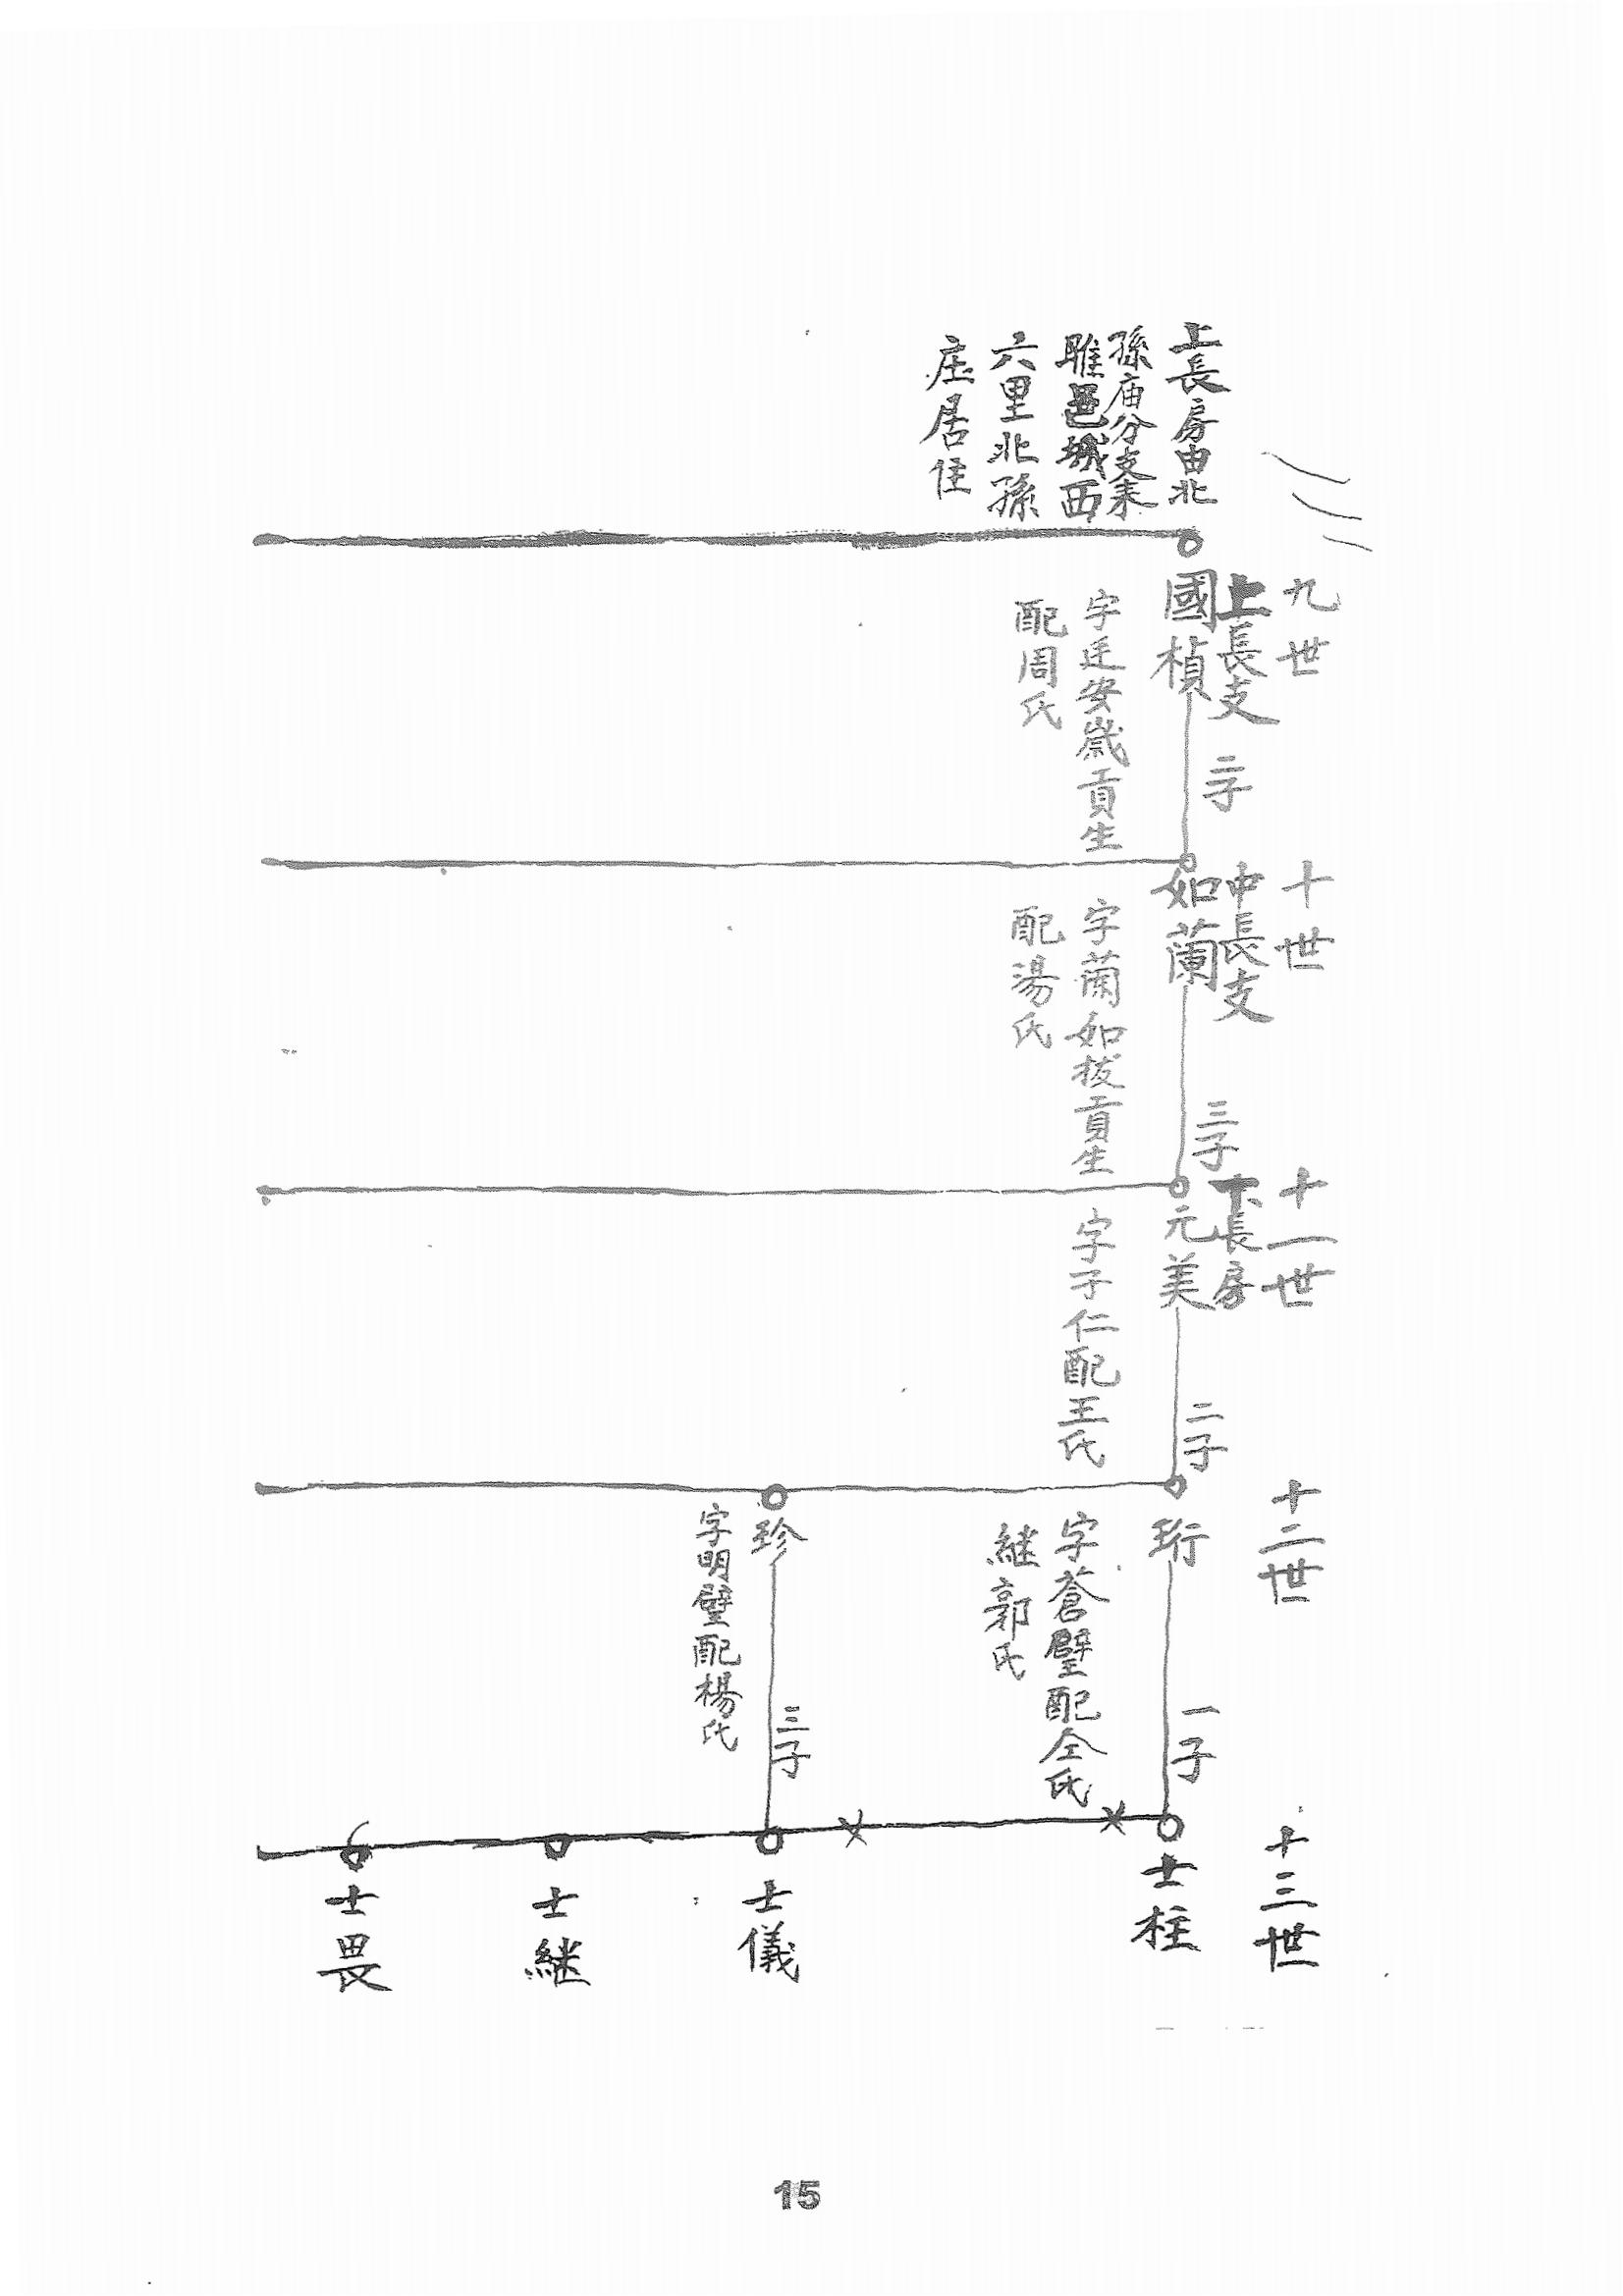 上長房由北
孫庙分支来
睢邑城西
六里北孫
庄居住
九世
上長支
國楨
字廷安歲貢生
配周氏
二子
十世
中長支
如蘭
字蘭如拔貢生
配湯氏
三子
十一世
下長房
元美
字子仁配王氏
二子
十二世
珩
字蒼璧配仝氏
継郭氏
一子
珍
字明璧配楊氏
三子
十三世
士柱
士儀
士継
士畏
15